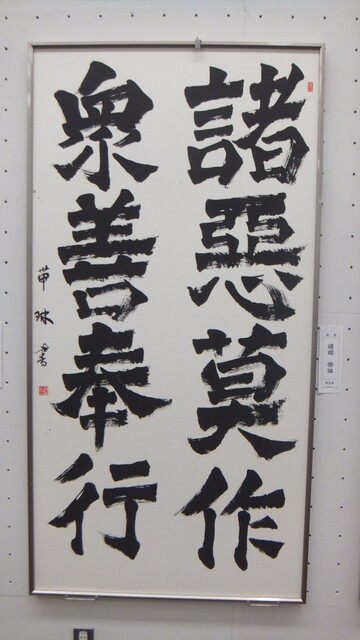 諸惡莫作
衆善奉行